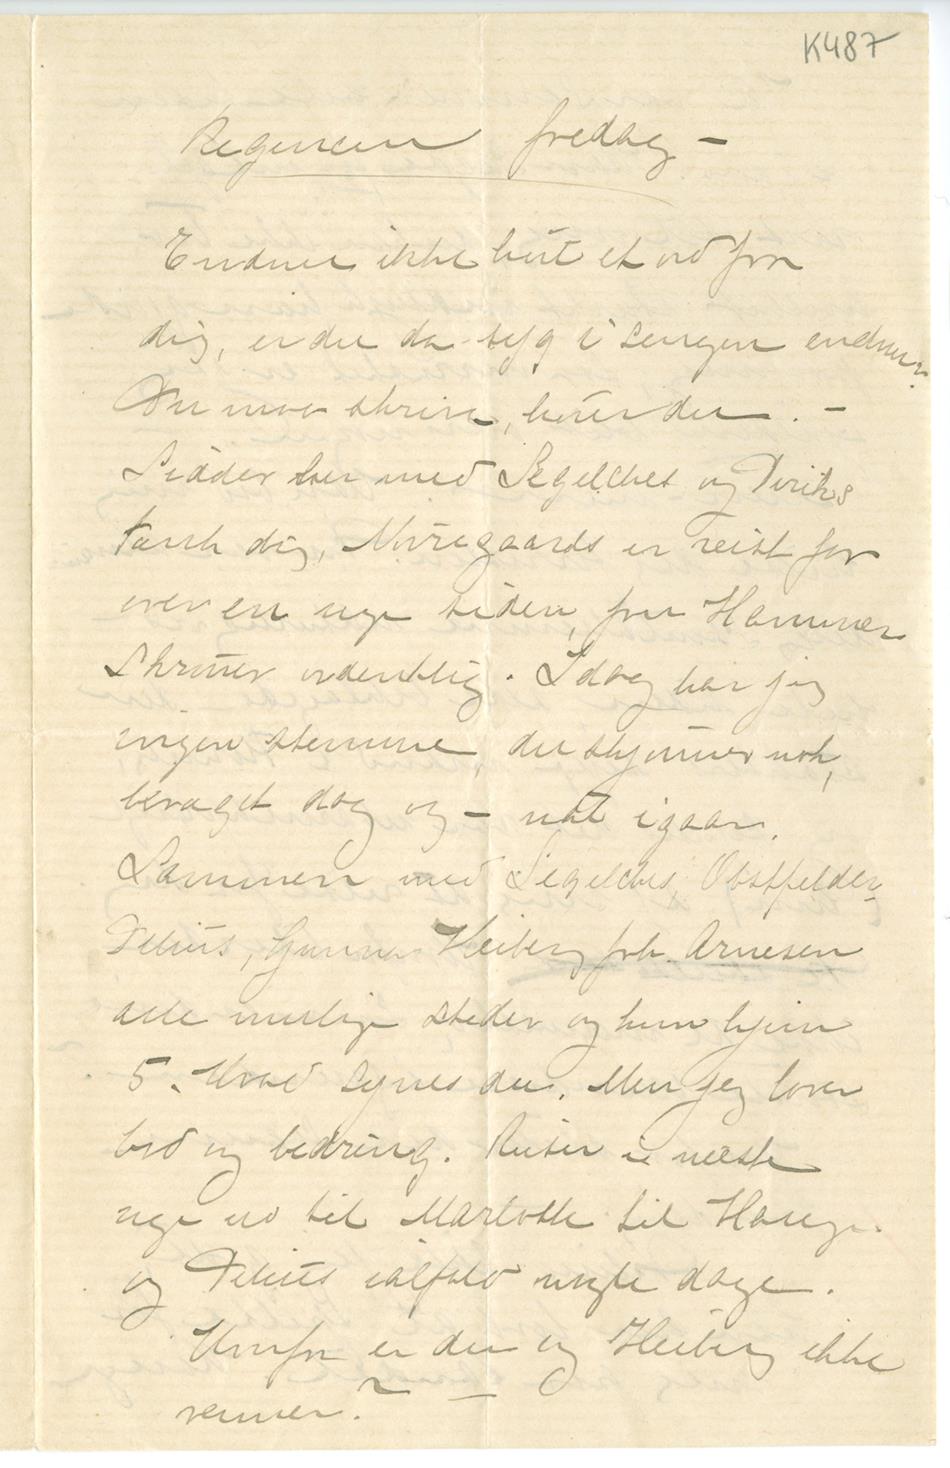 K487
Regencen fredag –
Endnu ikke hørt et ord fra
dig, er du da syg i sengen endnu?
Du maa skrive, hører du. –
Sidder her med Segelckes og Diriks
tænk dig, Nørregaards er reist for
over en uge siden, fru Hammer
skriver ordentlig. Idag har jeg
ingen stemme, du skjønner nok,
beraget dag og – nat igaar.
Sammen med Segelckes, Obstfelder,
Delius, Gunnar Heiberg frk. Arnesen
alle mulige steder og hem hjem
5. Hvad synes du. Men jeg lover
bod og bedring. Reiser i næste
uge ud til Marlotte til Hauge
og Delius ialfald nogle dage.
Hvorfor er du og Heiberg ikke
venner?